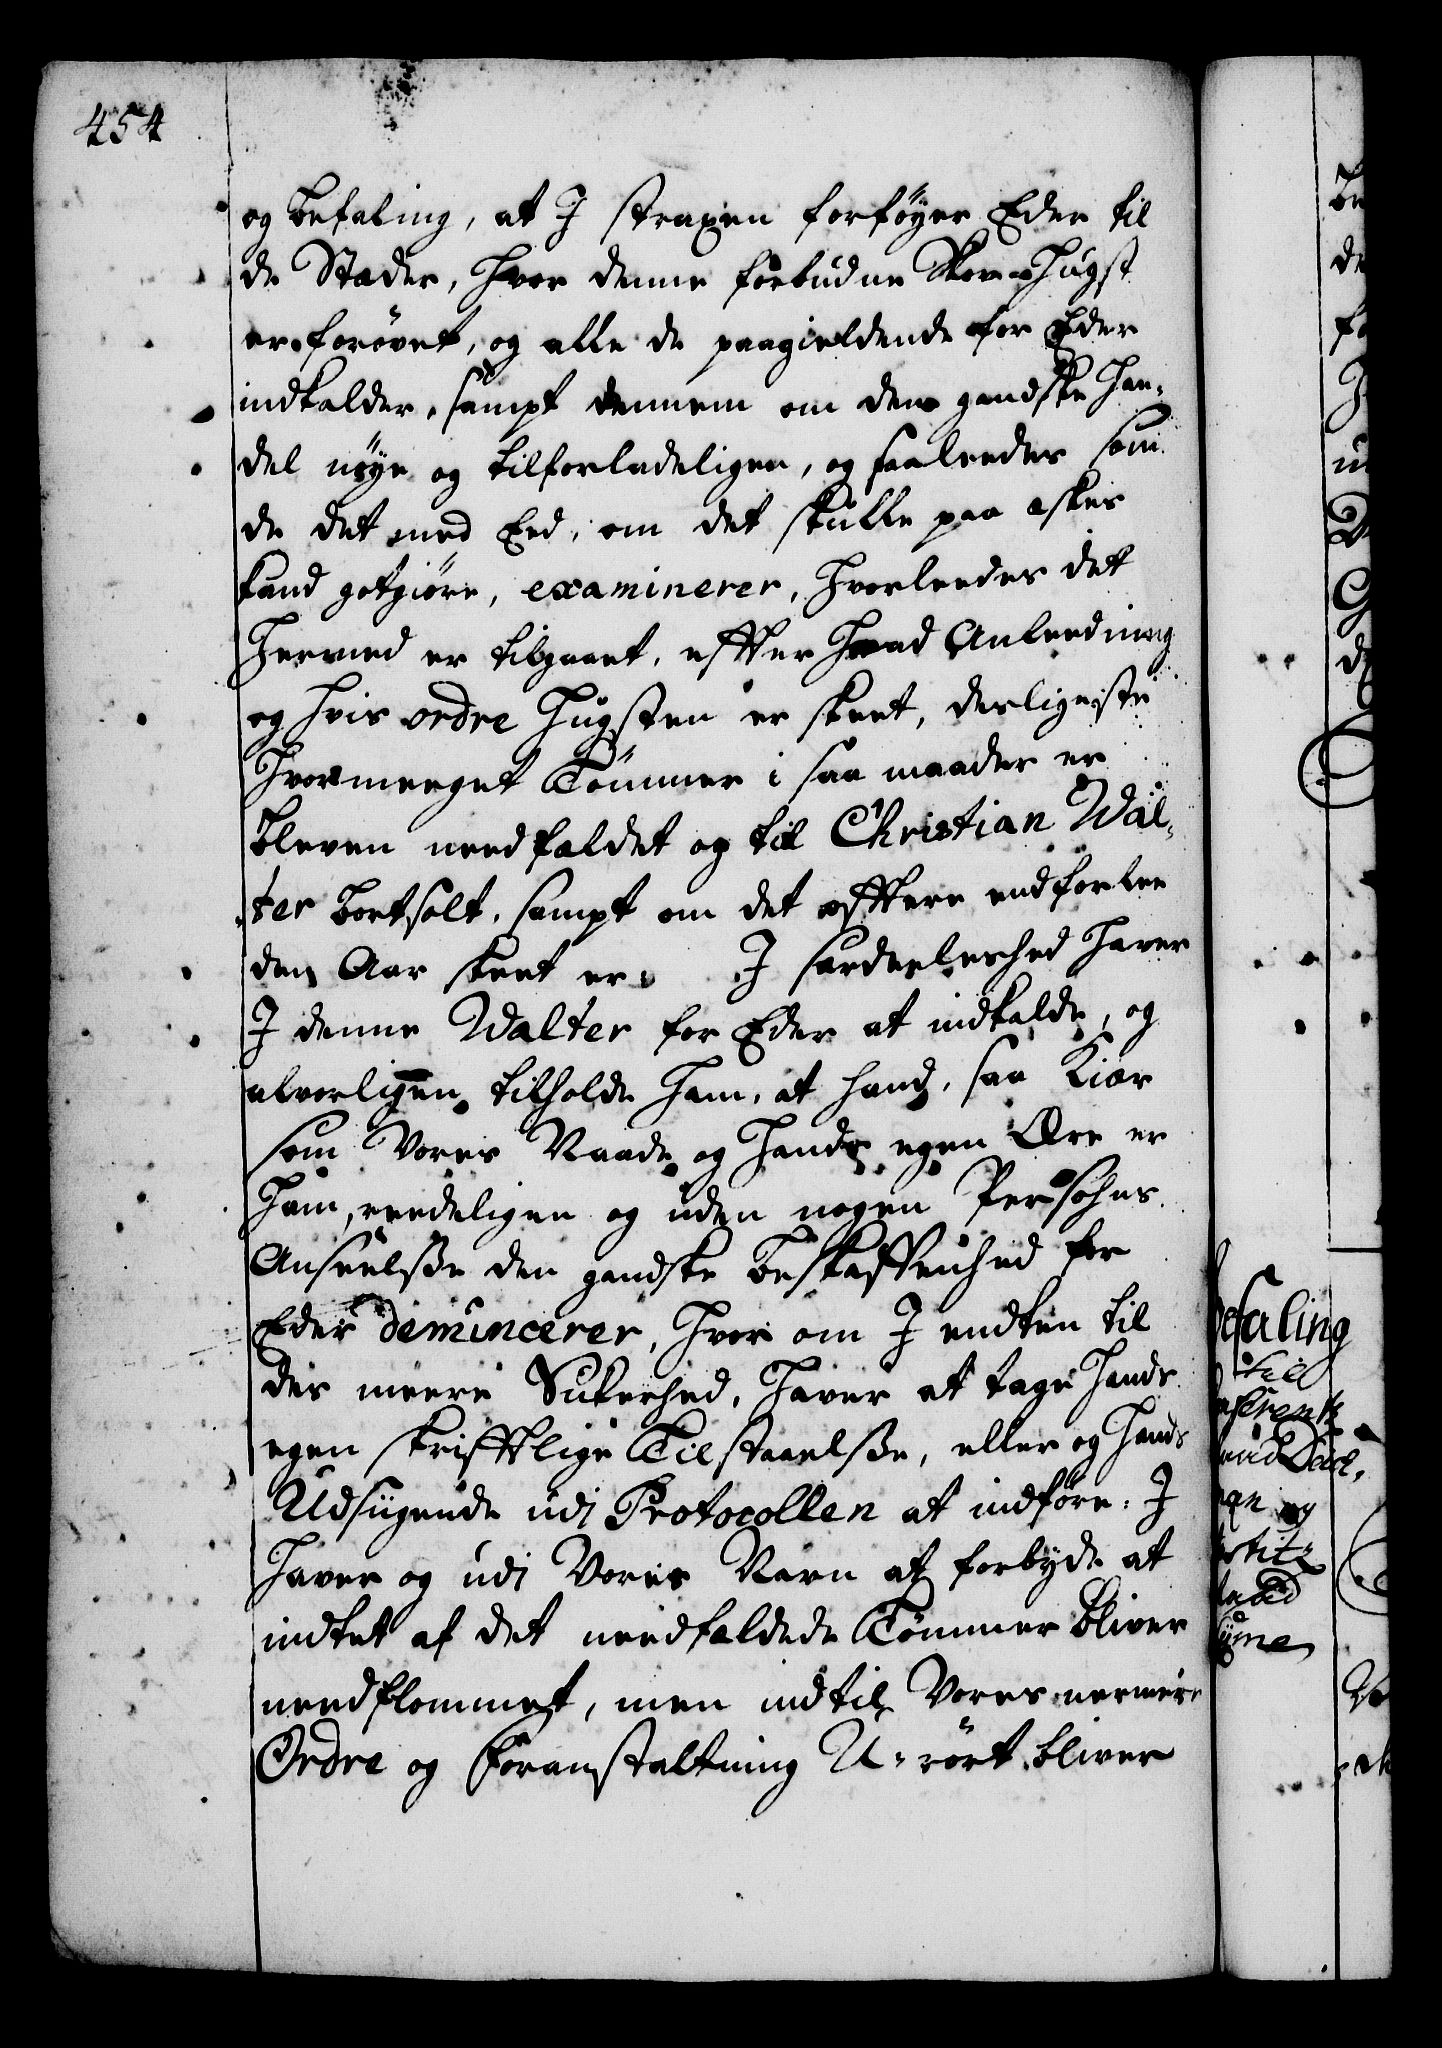 454
og befaling, at I straxen forföyer Eder til
de Stæder, hvor denne forbudne Skov-Hugst
er forövet, og alle de paagieldende for Eder
indkalder, sampt dennem om den gandske Han-
del nöye og tilforladeligen, og saaleedes som
de det med Eed, om det skulle paa æskes
kand gotgiöre, examinerer, hvorleedes det
hermed er tilgaaet, effter hvad Anleedning
og hvis ordre Hugsten er skeet, desligeste
hvormeeget Tömmer i saa maader er
bleven needfældet og til Christian Wal-
ter bortsolt, sampt om det effter endforlee
den Aar skeet er. I særdeeleshed haver
I denne Walter for Eder at indkalde, og
alvorligen tilholde ham, at hand, saa kiær
som Vores Naade og hands egen Ære er
ham, reedeligen og uden nogen Persohns
Anseelsße den gandske beskaffenhed for
Eder denuncerer, hvor om I endten til
des meere Sikerhed, haver at tage hands
egen skrifftlige Tilstaaelsße, eller og hands
Udsigende udi Protocollen at indföre. I
haver og udi Vores Navn at forbyde at
indtet af det needfældede Tömmer bliver
needflommet, men indtil Vores nermere
Ordre og foranstaltning U-rört bliver
befaling
til
og